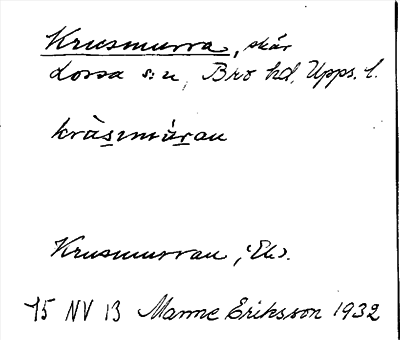 Krusmurra, skär
Lossa sn, Bro hd, Upps. l.
kràsmúran
Krusmurran, Ek.
75 NV 13 Manne Eriksson 1932